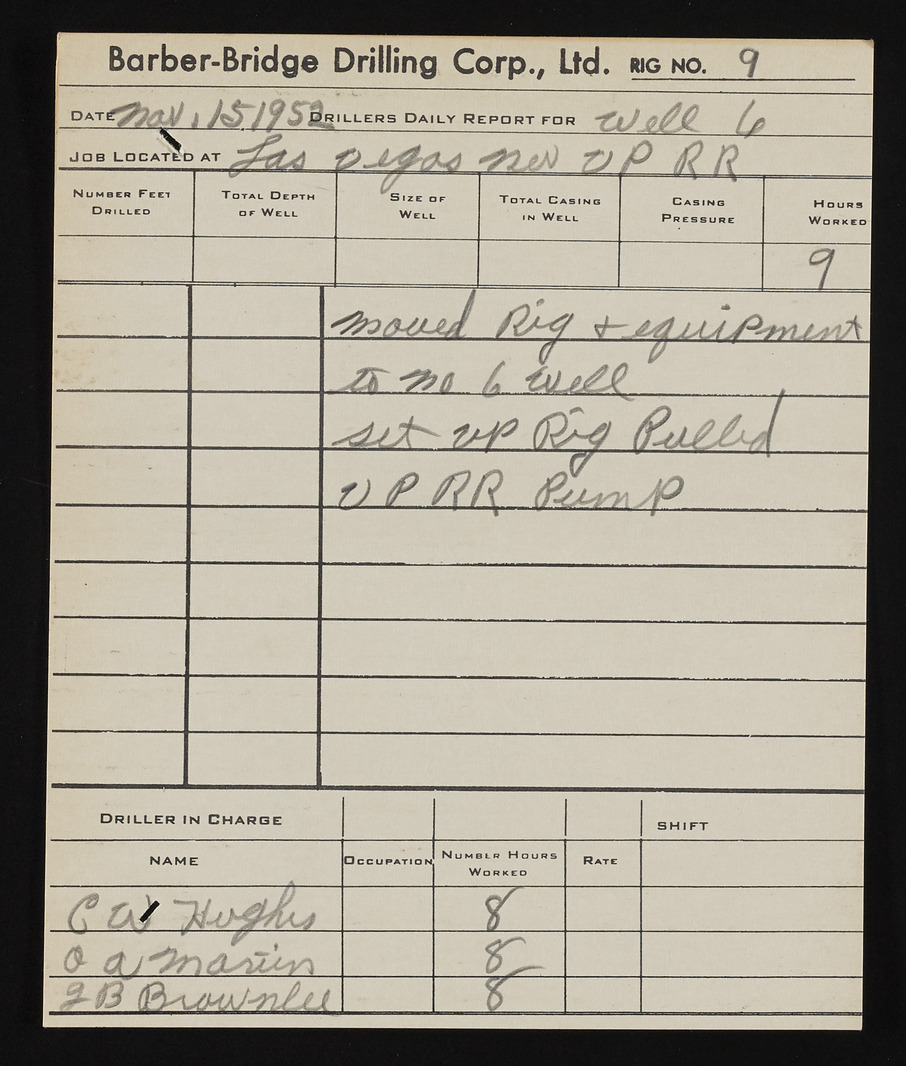 Barber-Bridge Drilling Corp., Ltd. RIG NO. 9
DATE Nov. 15 1952 DRILLERS DAILY REPORT FOR Well 6
JOB LOCATED AT Las Vegas Nev U P R R
NUMBER FEET DRILLED TOTAL DEPTH OF WELL SIZE OF WELL TOTAL CASING IN WELL CASING PRESSURE HOURS WORKED
9
moved Rig & equipment
to no 6 well
set up Rig Pulled
U P RR Pump
DRILLER IN CHARGE SHIFT
NAME OCCUPATION NUMBER HOURS WORKED RATE
C W Hughes 8
O A Martin 8
B Brownlee 8